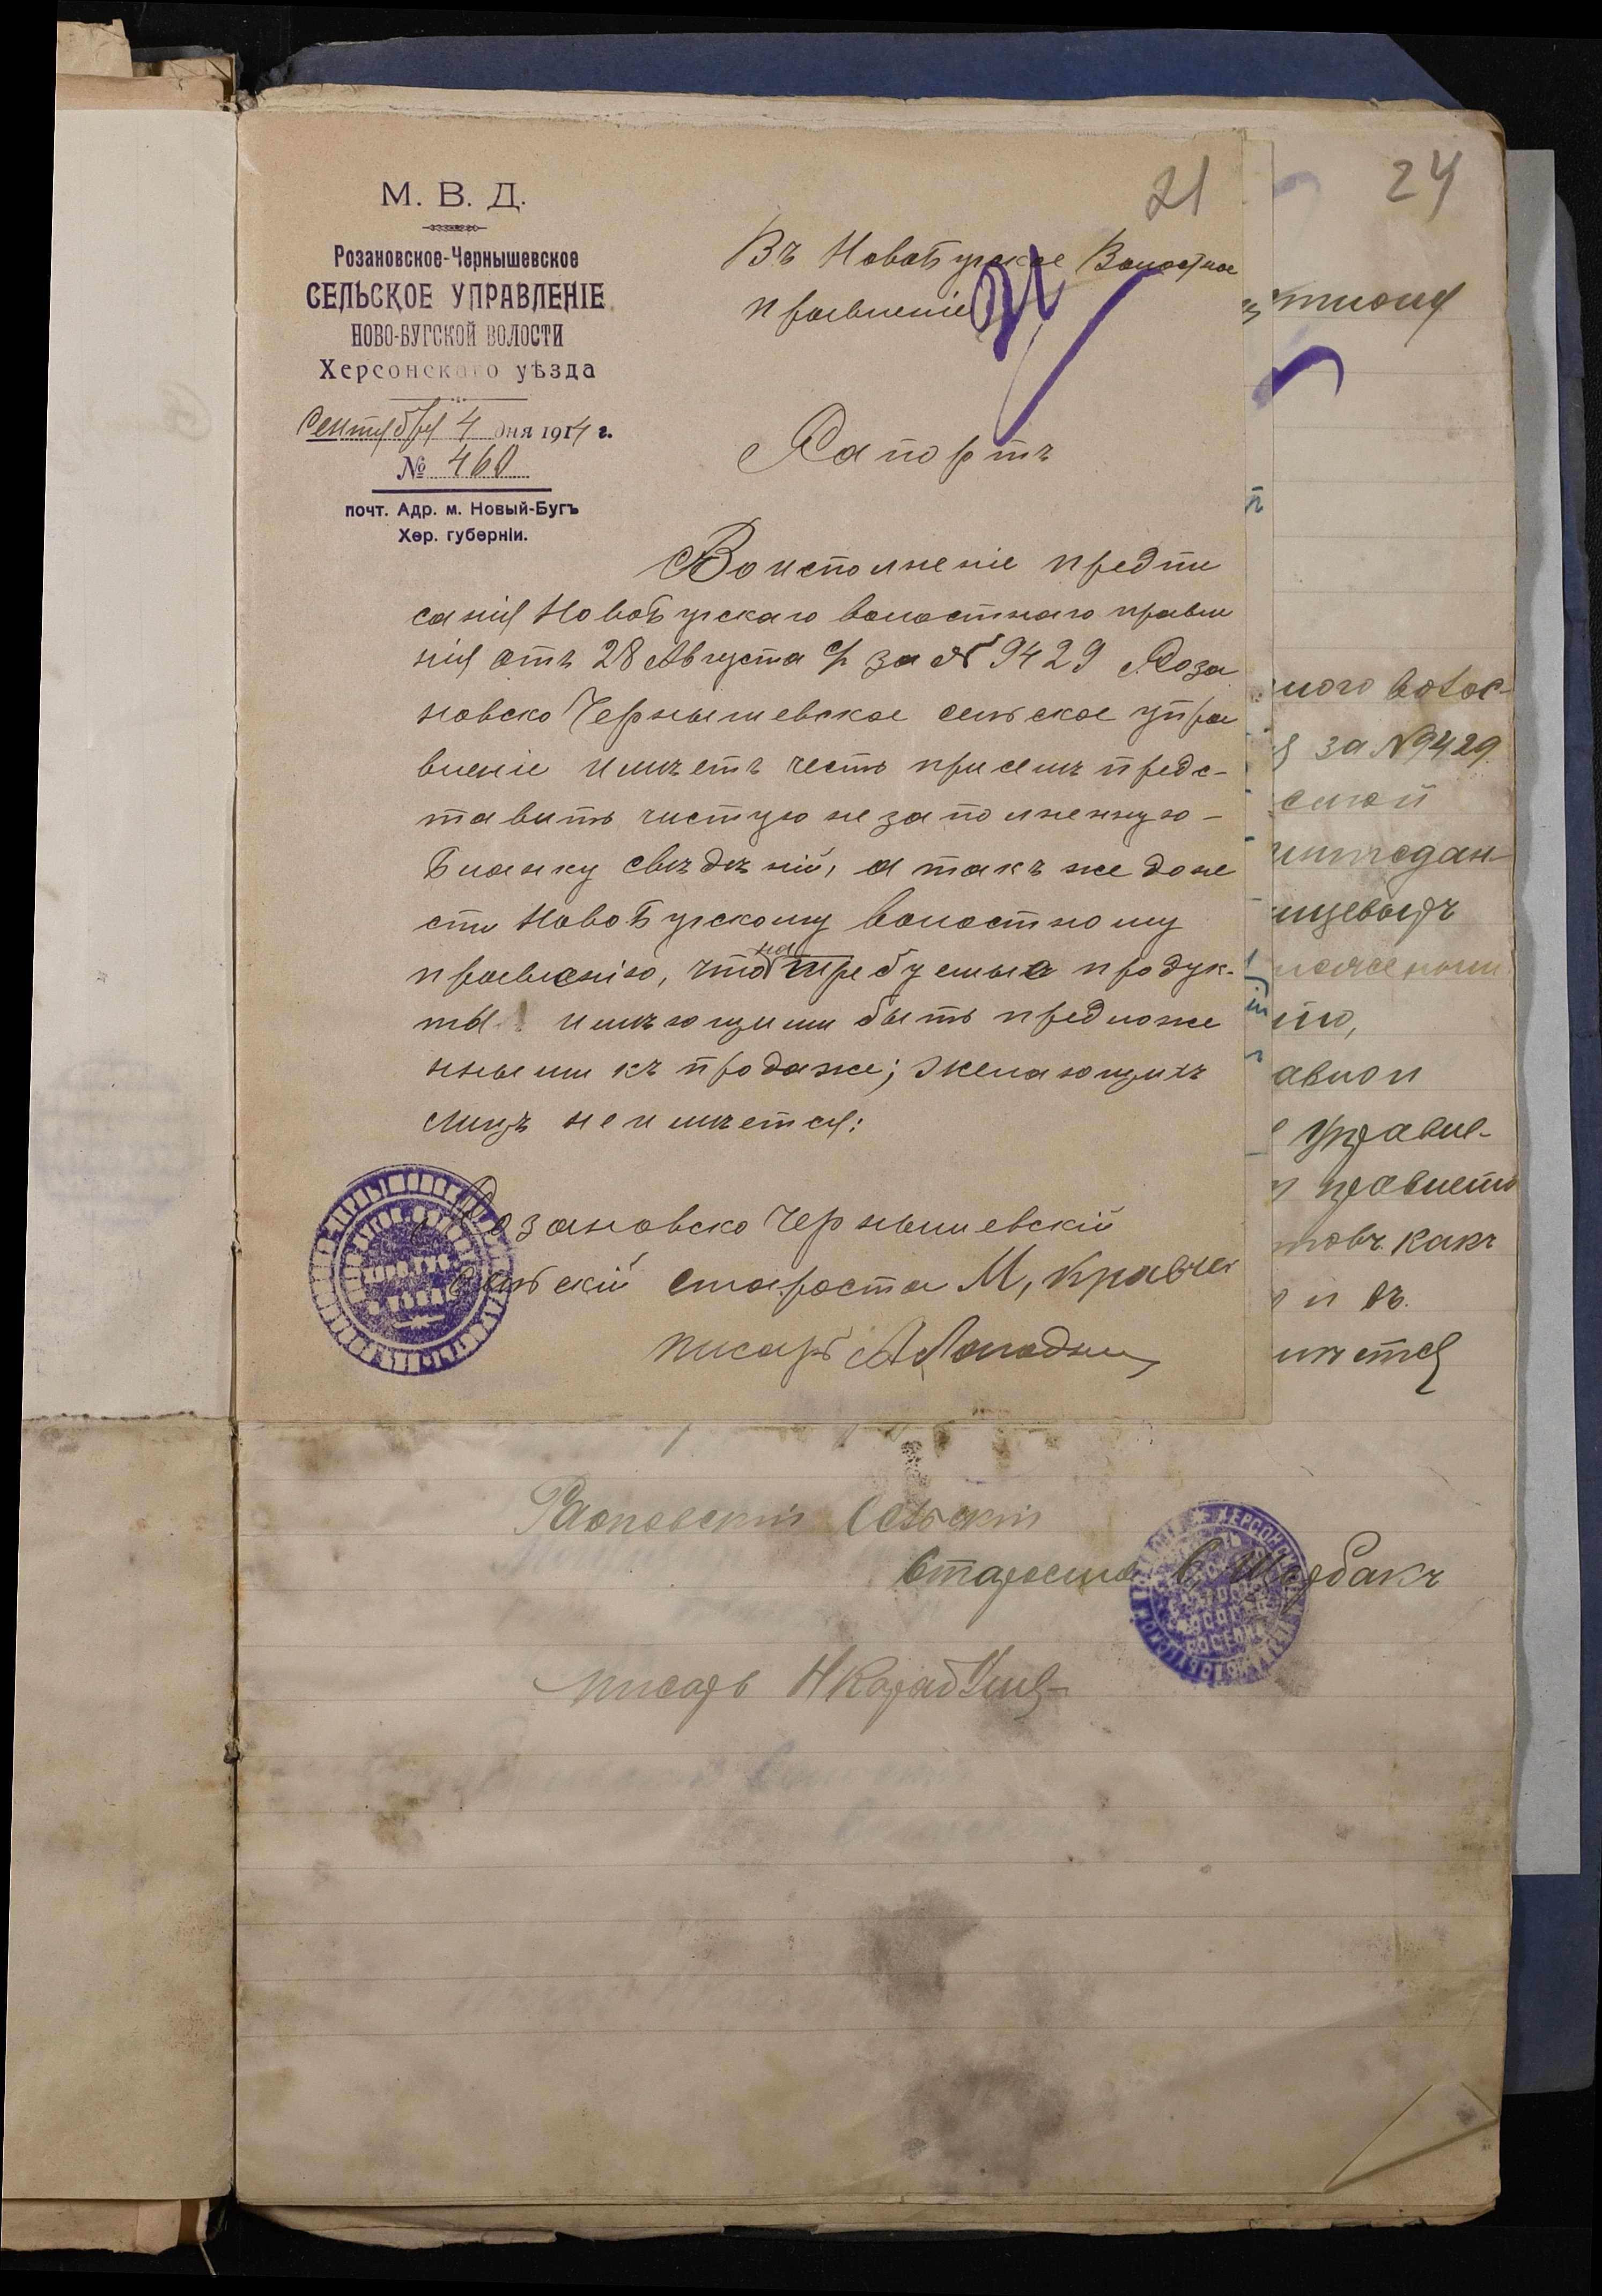 24
21
М. В. Д.
Розановское-Чернышевское
СЕЛЬСКОЕ УПРАВЛЕНІЕ
НОВО-БУГСКОЙ ВОЛОСТИ
Херсонскаго уѣзда
Сентября 4 дня 1914 г.
№ 460
почт. Адр. м. Новый-Бугъ
Хер. губерніи.
Въ НовоБугское Волостное
правленіе
Рапортъ
Во исполненіе предпи
санія НовоБугскаго волостнаго правле
нія отъ 28 Августа с/г за № 9429 Роза
новско Чернышевское сельское упра
вленіе имѣетъ честь при семъ предс-
тавить чистую не заполненную-
Бланку свѣдѣній, а такъ же доне
сти НовоБугскому волостному
правленію, что на требуемыя продук-
ты имѣющими быть предложе
нными къ продаже; желающихъ
лицъ не имѣется:
Розановско Чернышевскій
сельскій староста М, Кравчен
писарь А
ного волос-
за №9429
авлои
Управле-
товъ какъ
и въ
имѣется
Сельскій
староста С, Щербакъ
писарь Н